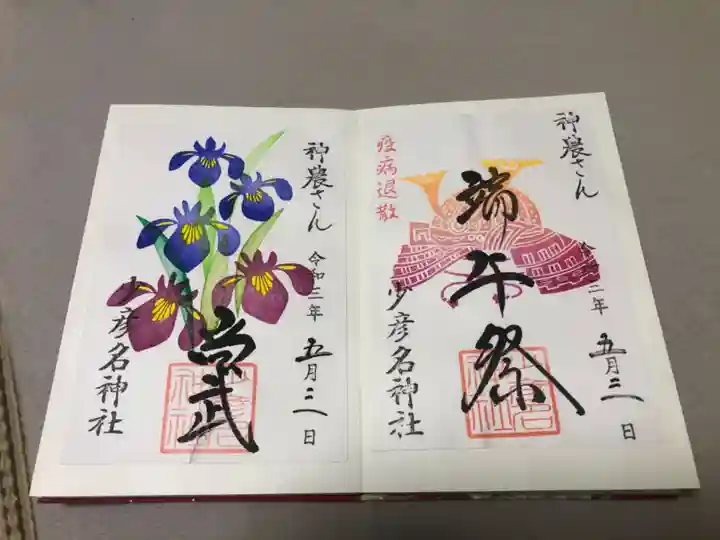 疫病退散
神農さん
端午祭
令和三年
五月三日
少彦名神社
神農さん
尚武
令和三年
五月三日
少彦名神社